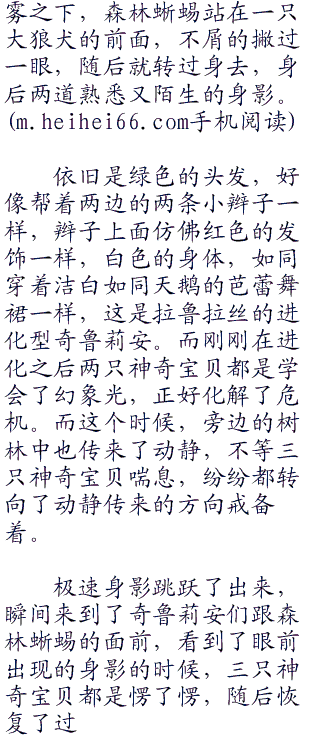 雾之下，森林蜥蜴站在一只
大狼犬的前面，不屑的撇过
一眼，随后就转过身去，身
后两道熟悉又陌生的身影。
(m.heihei66.com手机阅读)
依旧是绿色的头发，好
像帮着两边的两条小辫子一
样，辫子上面仿佛红色的发
饰一样，白色的身体，如同
穿着洁白如同天鹅的芭蕾舞
裙一样，这是拉鲁拉丝的进
化型奇鲁莉安。而刚刚在进
化之后两只神奇宝贝都是学
会了幻象光，正好化解了危
机。而这个时候，旁边的树
林中也传来了动静，不等三
只神奇宝贝喘息，纷纷都转
向了动静传来的方向戒备
着。
极速身影跳跃了出来，
瞬间来到了奇鲁莉安们跟森
林蜥蜴的面前，看到了眼前
出现的身影的时候，三只神
奇宝贝都是愣了愣，随后恢
复了过